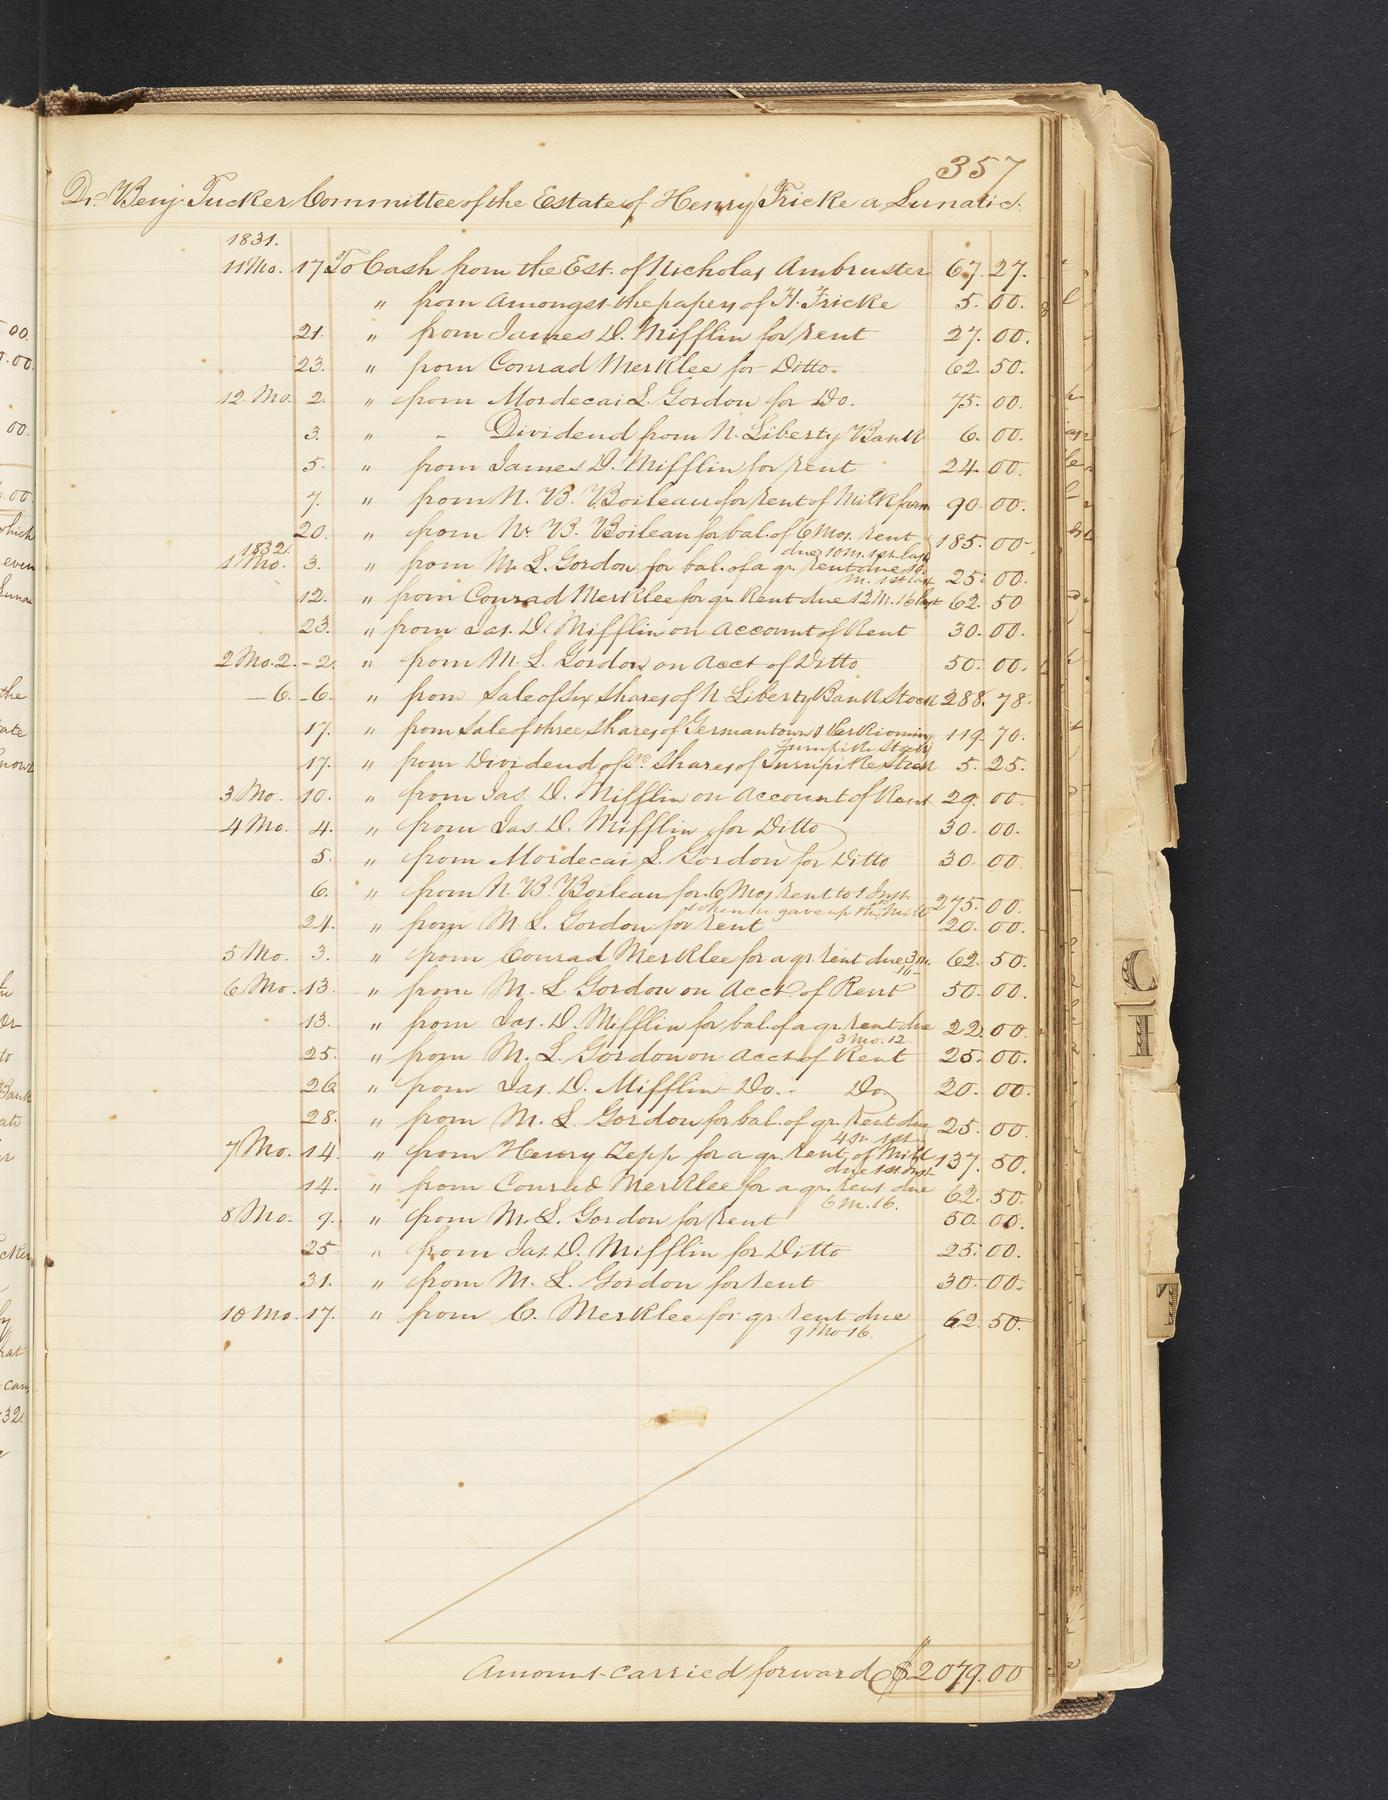 357
Dr. Benj. Tucker Committee of the Estate of Henry Fricke a Lunatic.
1831.
11 Mo. 17 To Cash from the Est. of Nicholas Ambruster 67. 27.
" from amongst the papers of H. Fricke 5. 00.
21. " from James D. Mifflin for rent 27. 00.
23. " from Conrad Merklee for Ditto. 62. 50.
12. Mo. 2. " from Mordecai L. Gordon for Do. 75. 00.
3. " - Dividend from N. Liberty Bank 6. 00.
5. " from James D. Mifflin for rent 24. 00.
7. " from N. B. Boileau for rent of Mill & farm 90. 00.
20. " from N. B. Boileau for bal. of 6 Mos. rent 185. 00
due 10 M. 1st last
1832.
1 Mo. 3. " from M. L. Gordon for bal. of a qr. rent due 10. 25. 00.
M. 1st last
12. " from Conrad Merklee for qr Rent due 12 M. 16 last 62. 50
23. " from Jas. D. Mifflin on account of Rent 30. 00.
2 Mo. 2. - 2. " from M. L. Gordon on acct of Ditto 50. 00.
- 6. - 6. " from Sale of Six Shares of N Liberty Bank Stock 288. 78.
17. " from Sale of three Shares of Germantown & Perkioming 119. 70.
Turnpike Stock
17. " from Dividend of Do. Shares of Turnpike Stock 5. 25.
3 Mo. 10. " from Jas. D. Mifflin on account of Rent 29. 00
4 Mo. 4. " from Jas. D. Mifflin for Ditto 30. 00.
5. " from Mordecai L. Gordon for Ditto 30. 00.
6. " from N. B. Boileau for 6 Mos rent to 1 Inst. 275. 00.
when he gave up the Mill
24. " from M. L. Gordon for rent 20. 00.
5 Mo. 3. " from Conrad Merklee for a qr. rent due 3 m. 62. 50.
16-
6 Mo. 13. " from M. L. Gordon on Acct. of Rent 50. 00.
13. " from Jas. D. Mifflin for bal. of a qr. rent due 22. 00
3 Mo. 12.
25. " from M. L. Gordon on acct of Rent 25. 00.
26 " from Jas. D. Mifflin - Do. - Do 20. 00.
28. " from M. L. Gordon for bal. of qr. Rent due 25. 00.
4 m. 1st
7 Mo. 14. " from Henry Zepp for a qr. rent of Mill 137. 50.
due 1st inst
14. " from Conrad Merklee for a qr. rent due 62. 50.
6 M. 16.
8 Mo. 9. " from M. L. Gordon for rent 50. 00.
25 " from Jas. D. Mifflin for Ditto 25. 00.
31. " from M. L. Gordon for rent 30. 00.
10 Mo. 17. " from C. Merklee for qr. rent due 62. 50.
9 Mo 16.
Amount carried forward $2079. 00
C
I
T